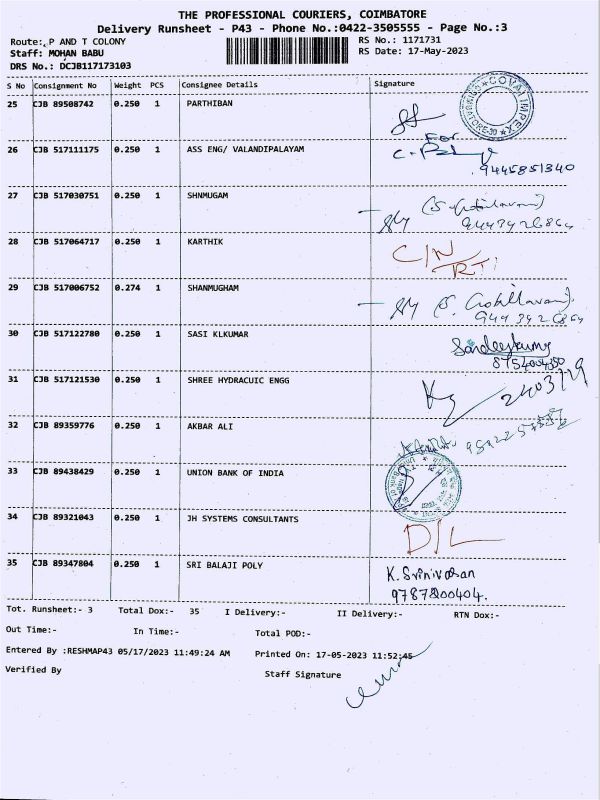 THE PROFESSIONAL COURIERS, COIMBATORE
Delivery Runsheet - P43 - Phone No.:0422-3505555 - Page No.:3
Route: P AND T COLONY
RS No.: 1171731
Staff: MOHAN BABU
RS Date: 17-May-2023
DRS No.: DCJB117173103
S No Consignment No Weight PCS Consignee Details Signature
25 CJB 89508742 0.250 1 PARTHIBAN
COVAI IMPEX
For
26 CJB 517111175 0.250 1 ASS ENG/ VALANDIPALAYAM
9445851340
27 CJB 517030751 0.250 1 SHNMUGAM
28 CJB 517064717 0.250 1 KARTHIK
C/N
RTI
29 CJB 517006752 0.274 1 SHANMUGHAM
30 CJB 517122780 0.250 1 SASI KLKUMAR
31 CJB 517121530 0.250 1 SHREE HYDRACUIC ENGG
32 CJB 89359776 0.250 1 AKBAR ALI
33 CJB 89438429 0.250 1 UNION BANK OF INDIA
34 CJB 89321043 0.250 1 JH SYSTEMS CONSULTANTS
D/L
35 CJB 89347804 0.250 1 SRI BALAJI POLY
K. Srinivasan
9787800404.
Tot. Runsheet:- 3 Total Dox:- 35 I Delivery:- II Delivery:- RTN Dox:-
Out Time:- In Time:- Total POD:-
Entered By :RESHMAP43 05/17/2023 11:49:24 AM Printed On: 17-05-2023 11:52:45
Verified By Staff Signature